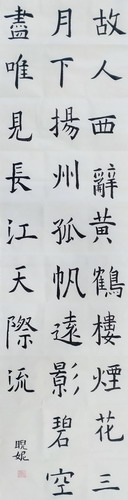 故人西辭黃鶴樓煙花三
月下揚州孤帆遠影碧空
盡唯見長江天際流
睨妮